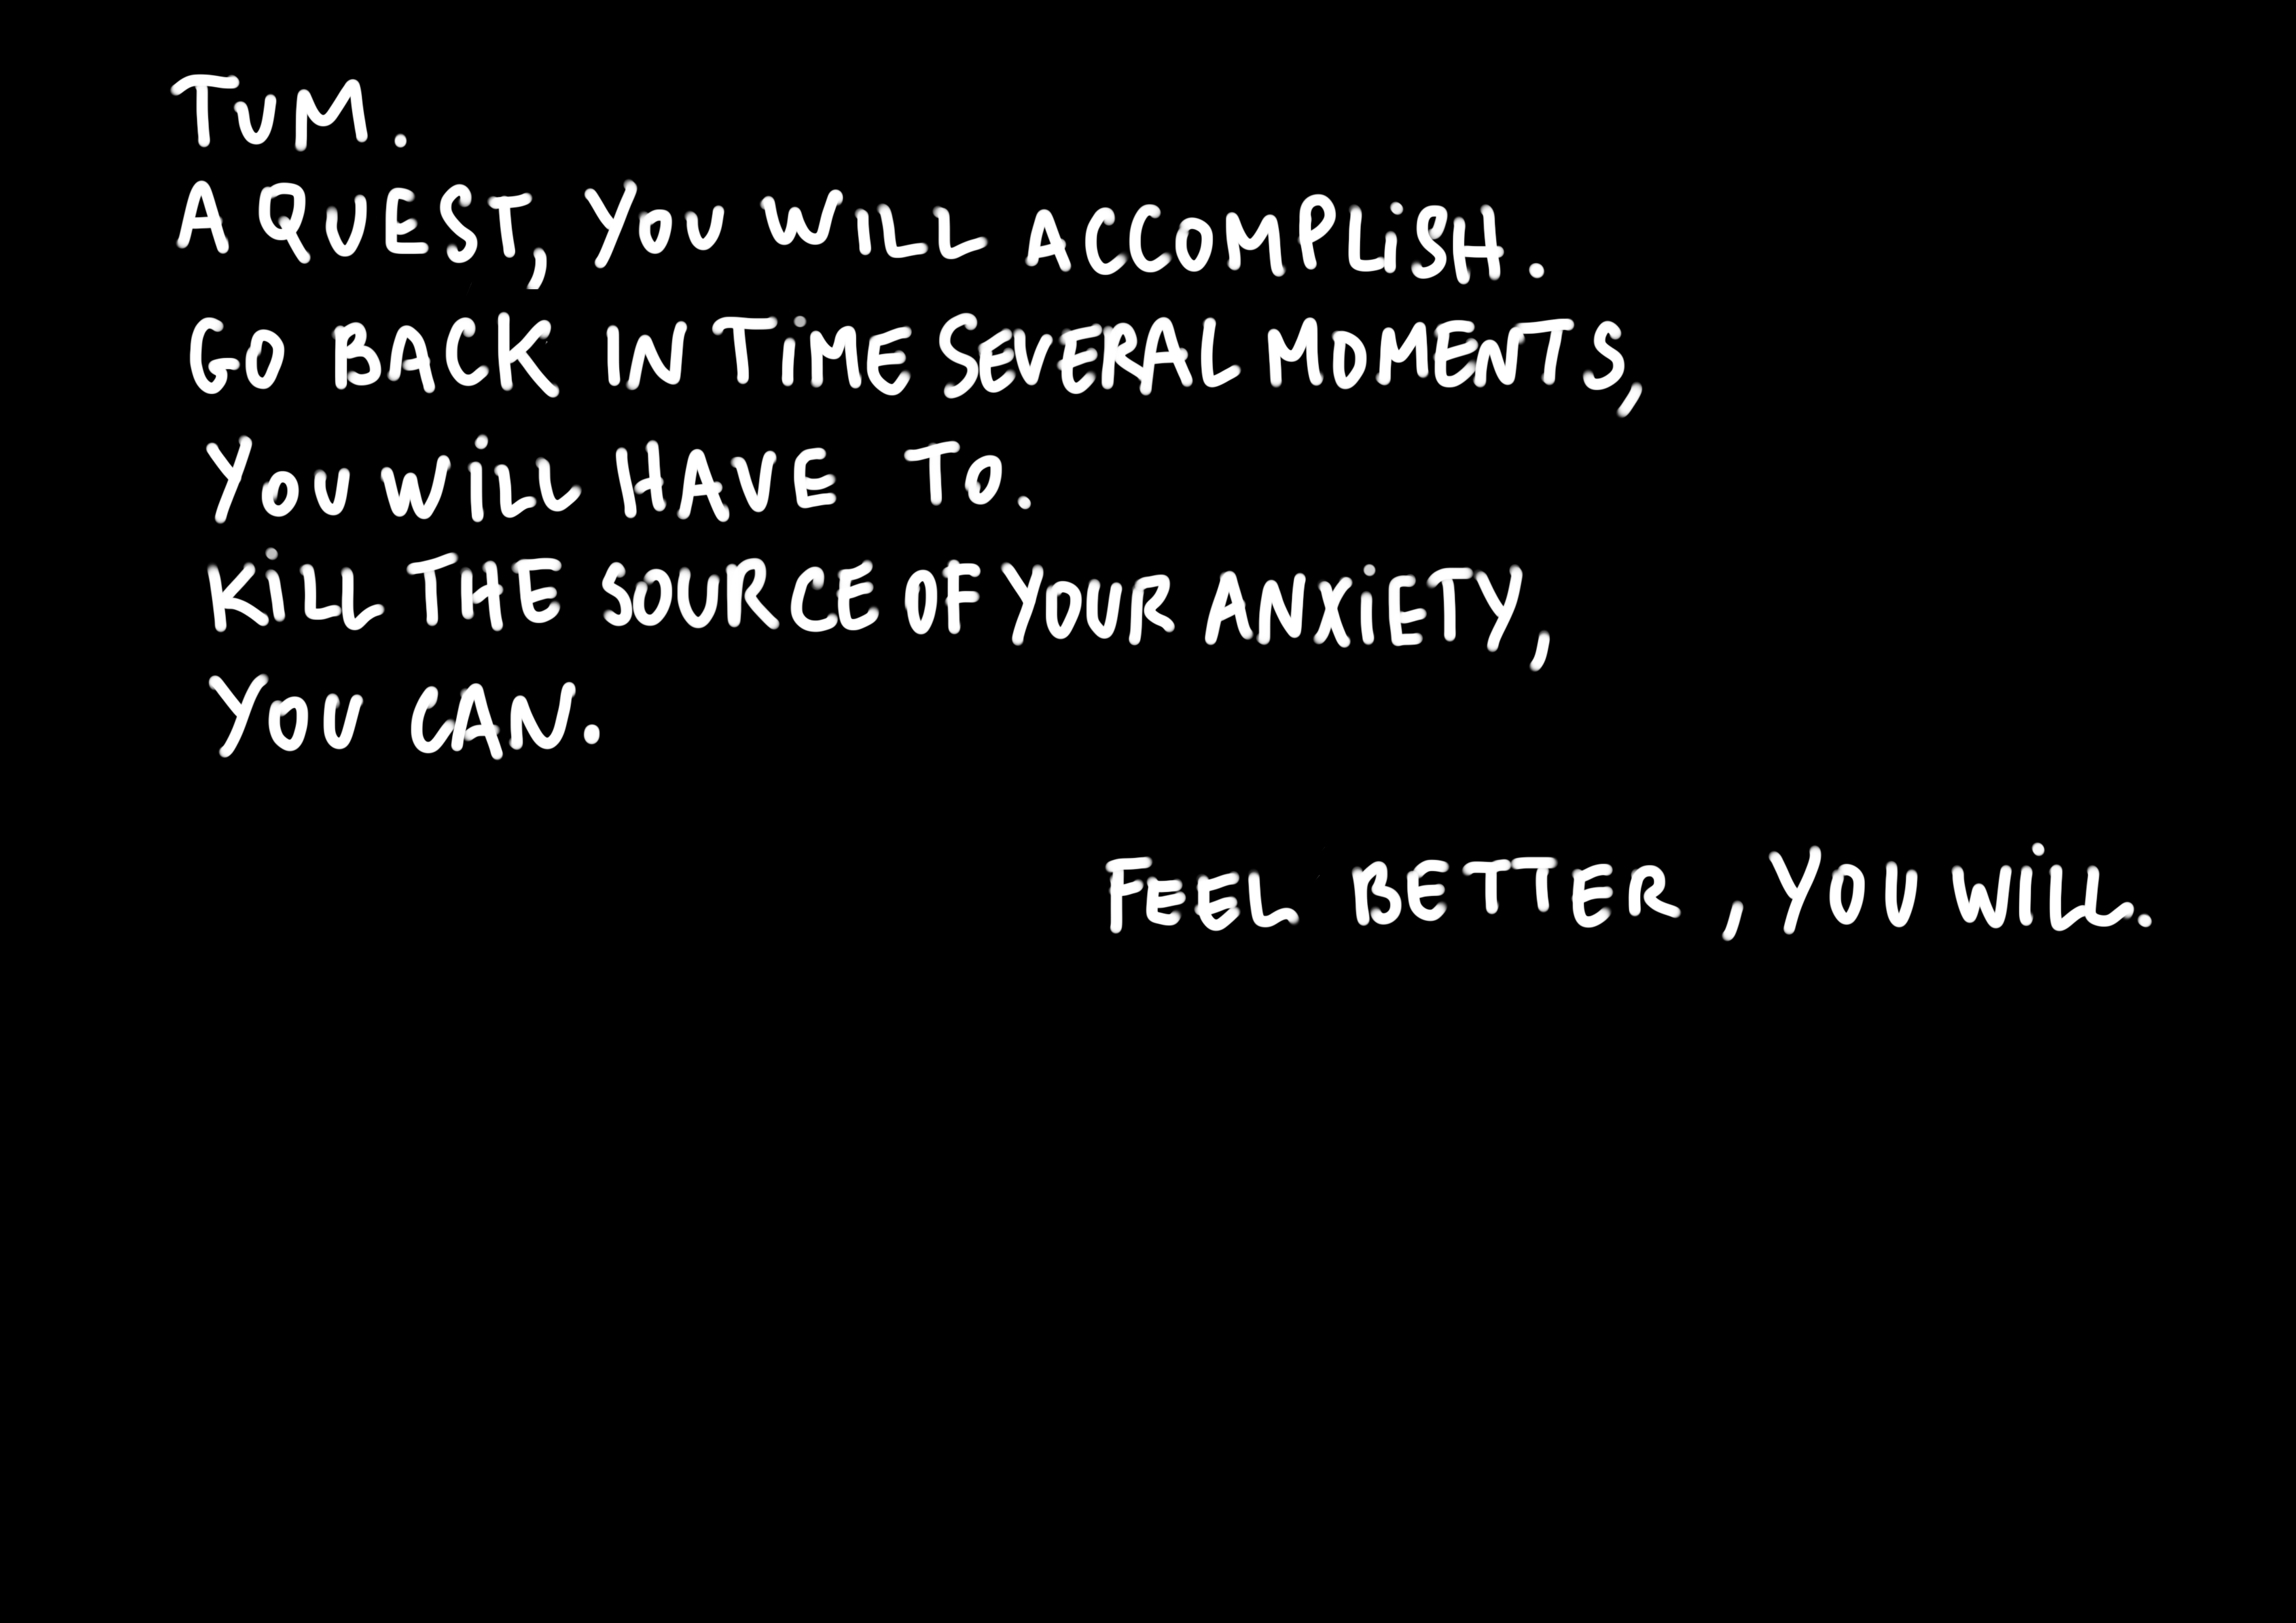 TUM.
A QUEST, YOU WILL ACCOMPLISH.
GO BACK IN TIME SEVERAL MOMENTS,
YOU WILL HAVE TO.
KILL THE SOURCE OF YOUR ANXIETY,
YOU CAN.
FEEL BETTER, YOU WILL.